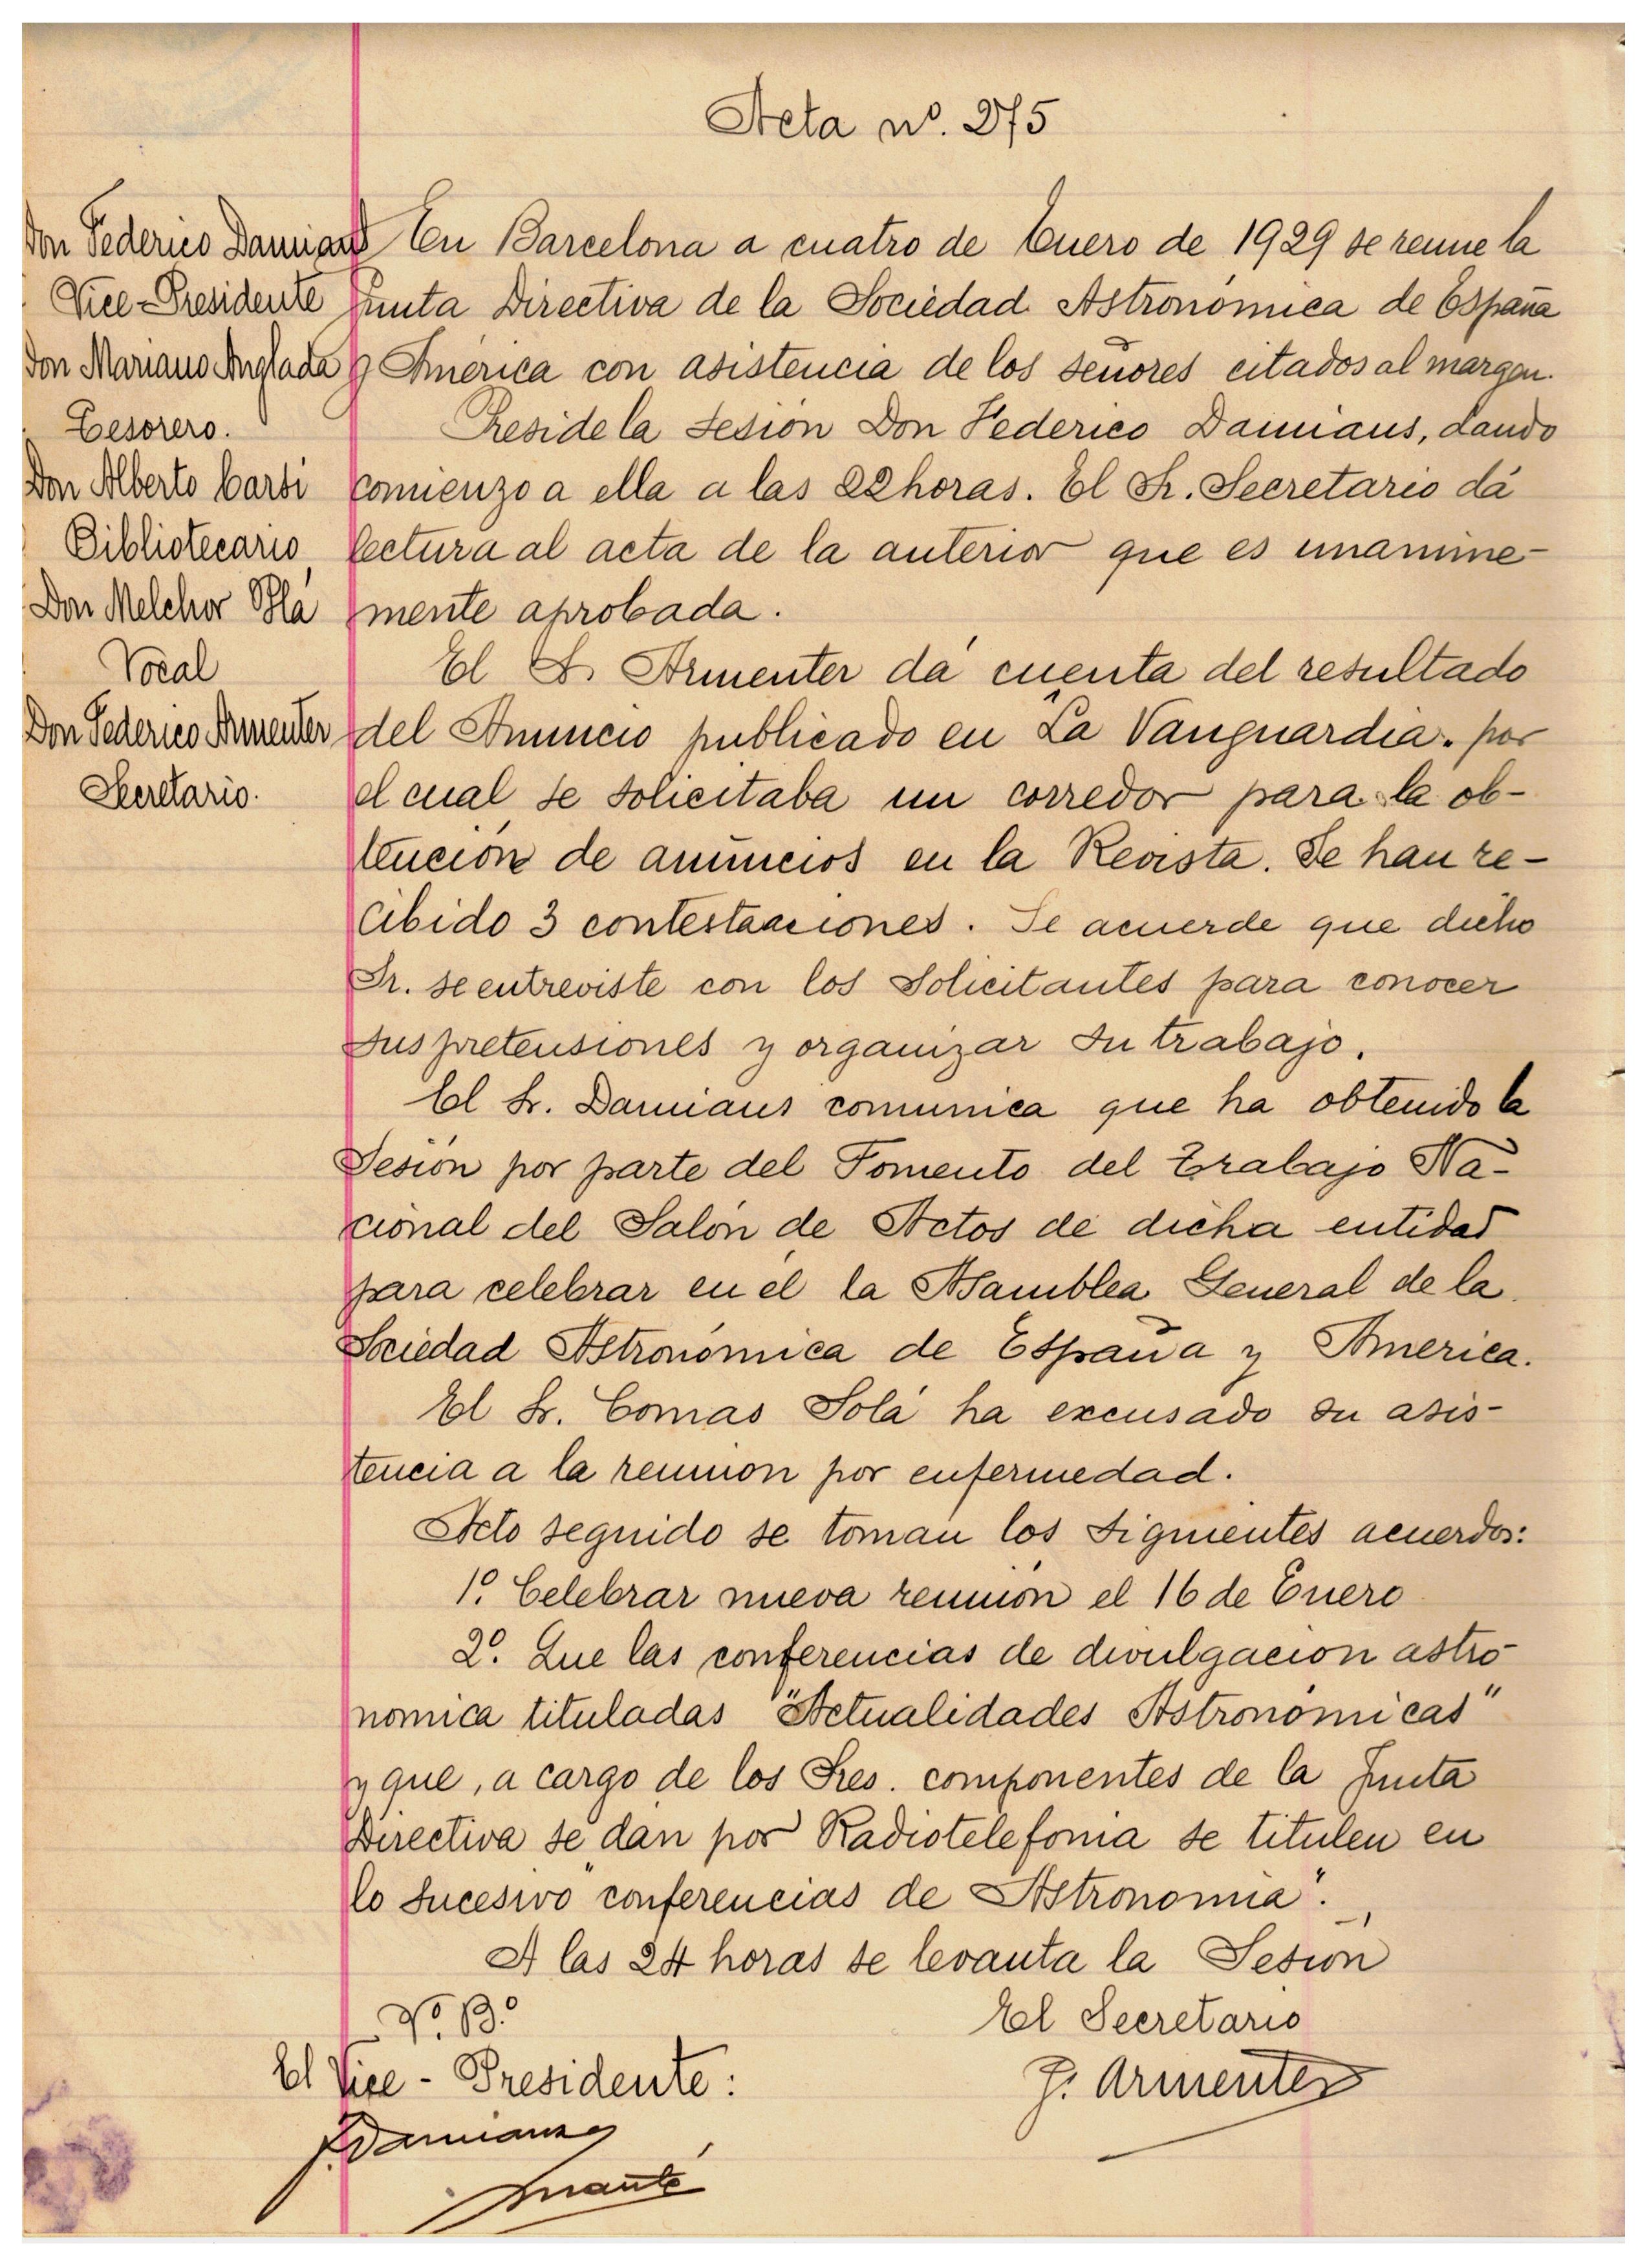 Acta nº. 275
Don Federico Damians
Vice-Presidente
Don Mariano Anglada
Tesorero.
Don Alberto Carsi
Bibliotecario
Don Melchor Plá
Vocal
Don Federico Armenter
Secretario.
En Barcelona a cuatro de Enero de 1929 se reune la
Junta Directiva de la Sociedad Astronómica de España
y América con asistencia de los señores citados al margen.
Preside la sesión Don Federico Damians, dando
comienzo a ella a las 22 horas. El Sr. Secretario dá
lectura al acta de la anterior que es unanime-
mente aprobada.
El S. Armenter dá cuenta del resultado
del Anuncio publicado en La Vanguardia. por
el cual se solicitaba un corredor para la ob-
tención de anuncios en la Revista. Se han re-
cibido 3 contestaaciones. Se acuerde que dicho
Sr. se entreviste con los solicitantes para conocer
sus pretensiones y organizar su trabajo.
El Sr. Damians comunica que ha obtenido la
Sesión por parte del Fomento del Trabajo Na-
cional del Salón de Actos de dicha entidad
para celebrar en él la Asamblea General de la
Sociedad Astronómica de España y America.
El Sr. Comas Solá ha excusado su asis-
tencia a la reunion por enfermedad.
Acto seguido se toman los siguientes acuerdos:
1º. Celebrar nueva reunión el 16 de Enero
2º. Que las conferencias de divulgacion astro-
nomica tituladas "Actualidades Astronómicas"
y que, a cargo de los Sres. componentes de la Junta
Directiva se dan por Radiotelefonia se titulen en
lo sucesivo "conferencias de Astronomia".
A las 24 horas se levanta la Sesión
Vº. Bº.
El Vice-Presidente:
F. Damians
El Secretario
F. Armenter